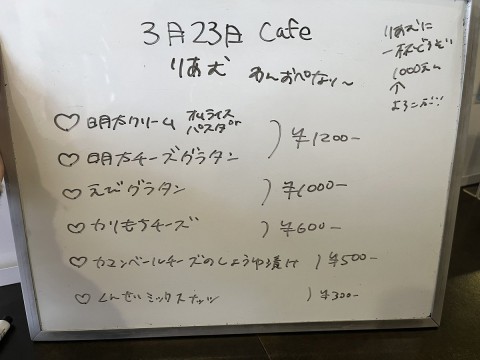 3月23日 Cafe
りあむ わんおぺなり〜
りあむに
一杯どうぞ
1000えん
↑
よろこぶ!!
♡明太クリーム オムライス
パスタ or
♡明太チーズグラタン
) ¥1200-
♡えびグラタン ) ¥1000-
♡かりもちチーズ ) ¥600-
♡カマンベールチーズのしょうゆ漬け ) ¥500-
♡くんせいミックスナッツ ) ¥300-